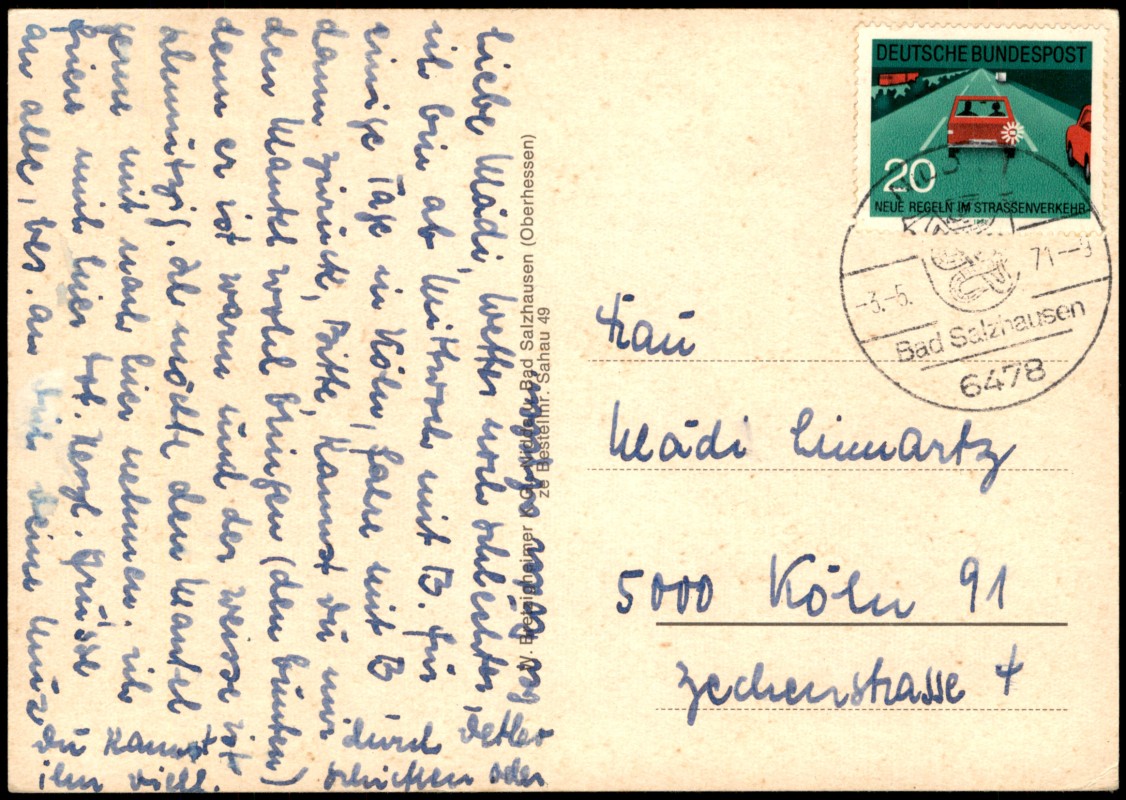 Liebe Mädi, Wetter noch schlechter,
ich bin ab Mittwoch mit B. für
einige Tage in Köln, fahre mit B
dann zurück, Bitte, kannst du mir
den Mantel wohl bringen (den bunten)
denn er ist warm und der weisse ist
schmutzig. Ich möchte den Mantel
gerne mit nach hier nehmen. ich
friere mich hier tot. Herzl. Grüsse
an alle, bes. an Dich deine Mutz
du kannst
ihn viell.
durch Detlev
schicken oder
W. Bretzinheimer KG, Nidda-Bad Salzhausen (Oberhessen)
ze Bestellnr. Sahau 49
DEUTSCHE BUNDESPOST
20
NEUE REGELN IM STRASSENVERKEHR
-3.-5. 71--9
Bad Salzhausen
6478
Frau
Mädi Linnartz
5000 Köln 91
Zechenstrasse 4